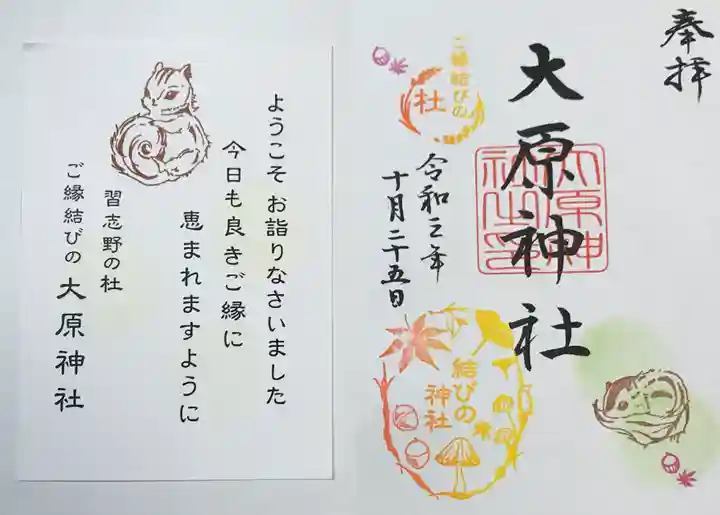 ようこそ お詣りなさいました
今日も良きご縁に
恵まれますように
習志野の杜
ご縁結びの 大原神社
奉拝
大原神社
大原神
社之印
ご縁結びの
杜
令和三年
十月二十五日
結びの
神社